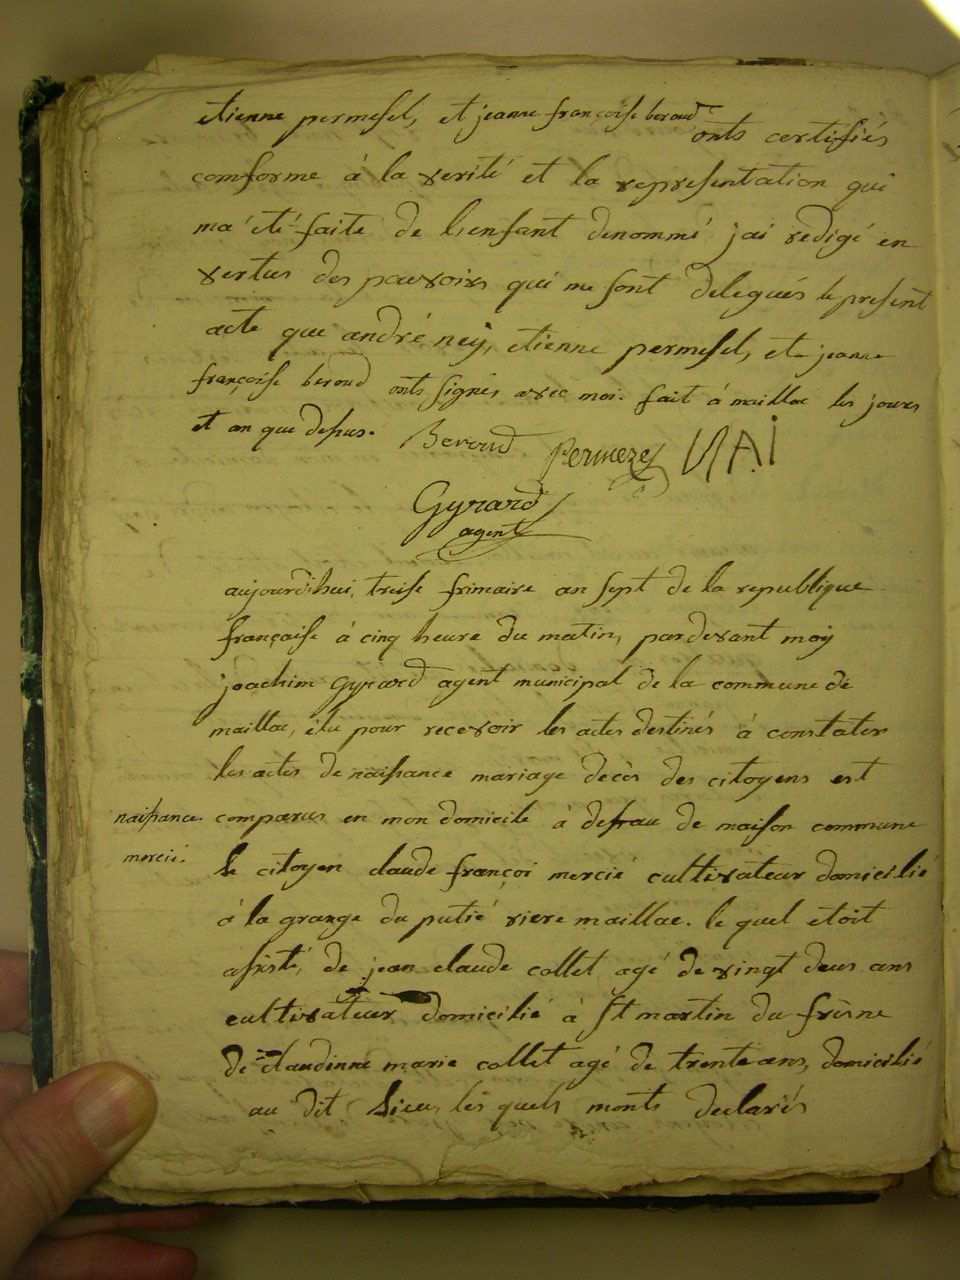 etienne permesel, et jeanne françoise beroud onts certifiés
comforme à la verité et la representation qui
ma été faite de l'enfant denommé jai redigé en
vertus des pouvoirs qui me sont delegués le present
acte que andré neÿ, etienne permesel, et jeanne
françoise beroud onts signés avec moi. fait à maillac les jours
et an que desus. Beroud Permezel NAi
Gyrard
agent
aujourd'hui, treise frimaire an sept de la republique
française à cinq heure du matin, pardevant moÿ
joachim Gyrard agent municipal de la commune de
maillac, élu pour recevoir les actes destinés à constater
les actes de naissance mariage décès des citoyens est
naissance comparus en mon domicile à defeau de maison commune
mercié. le citoyen claude françoi mercié cultivateur domicilié
à la grange du putié riere maillac. le quel etoit
assisté, de jean claude collet agé de vingt deus ans
cultivateur domicilié à St martin du frêne
de claudinne marie collet agé de trente ans, domicilié
au dit Lieu, les quels monts declarés